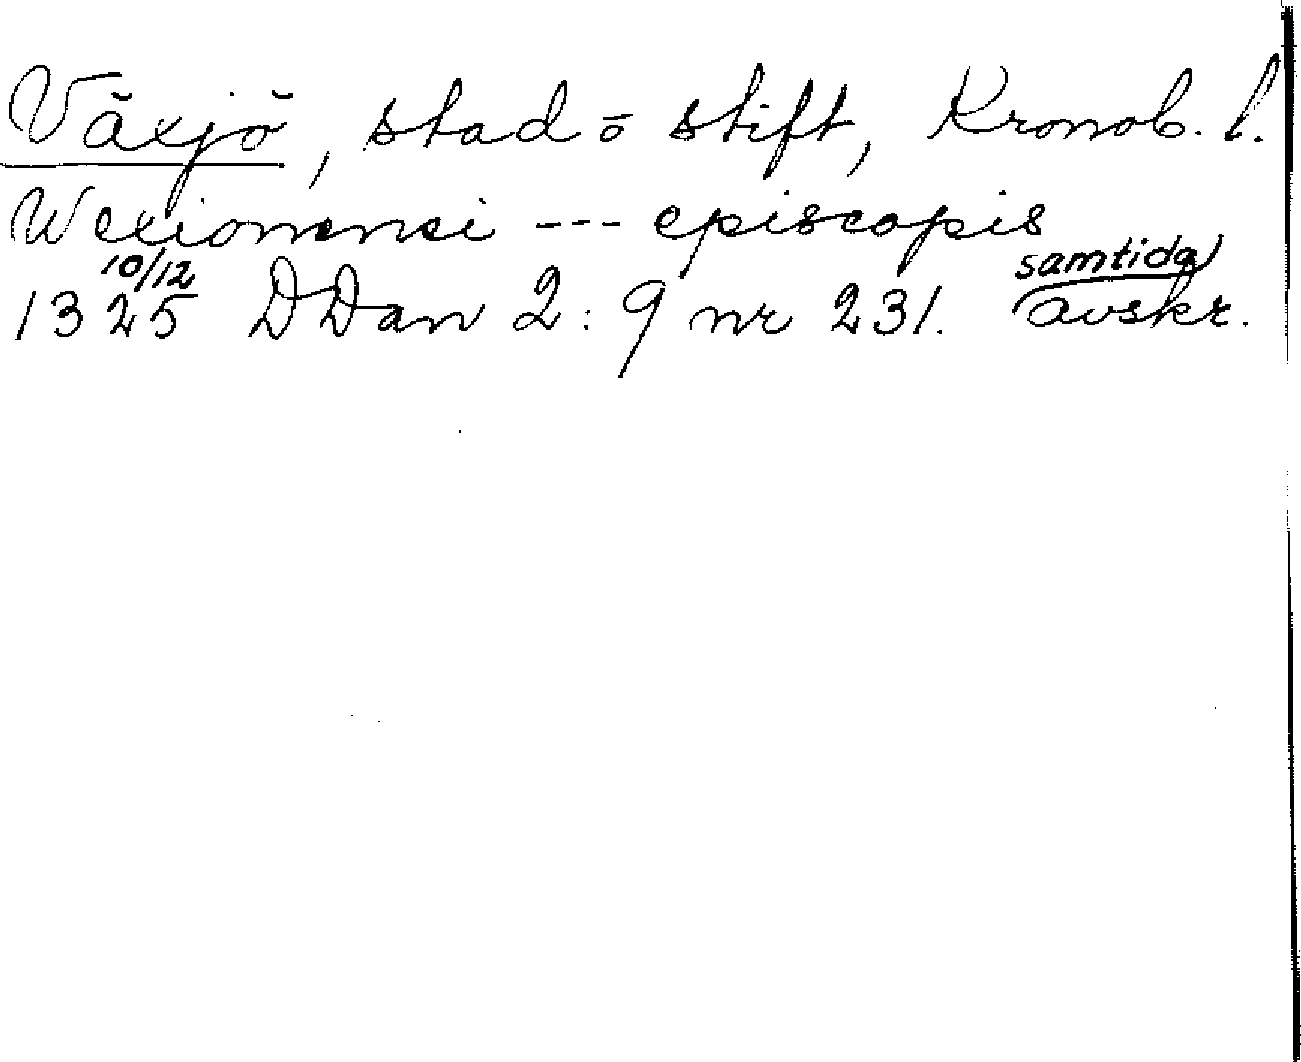 Växjö, stad o stift, Kronob. l.
Wexionensi --- episcopis
1325 10/12 DDan 2:9 nr 231. samtida avskr.